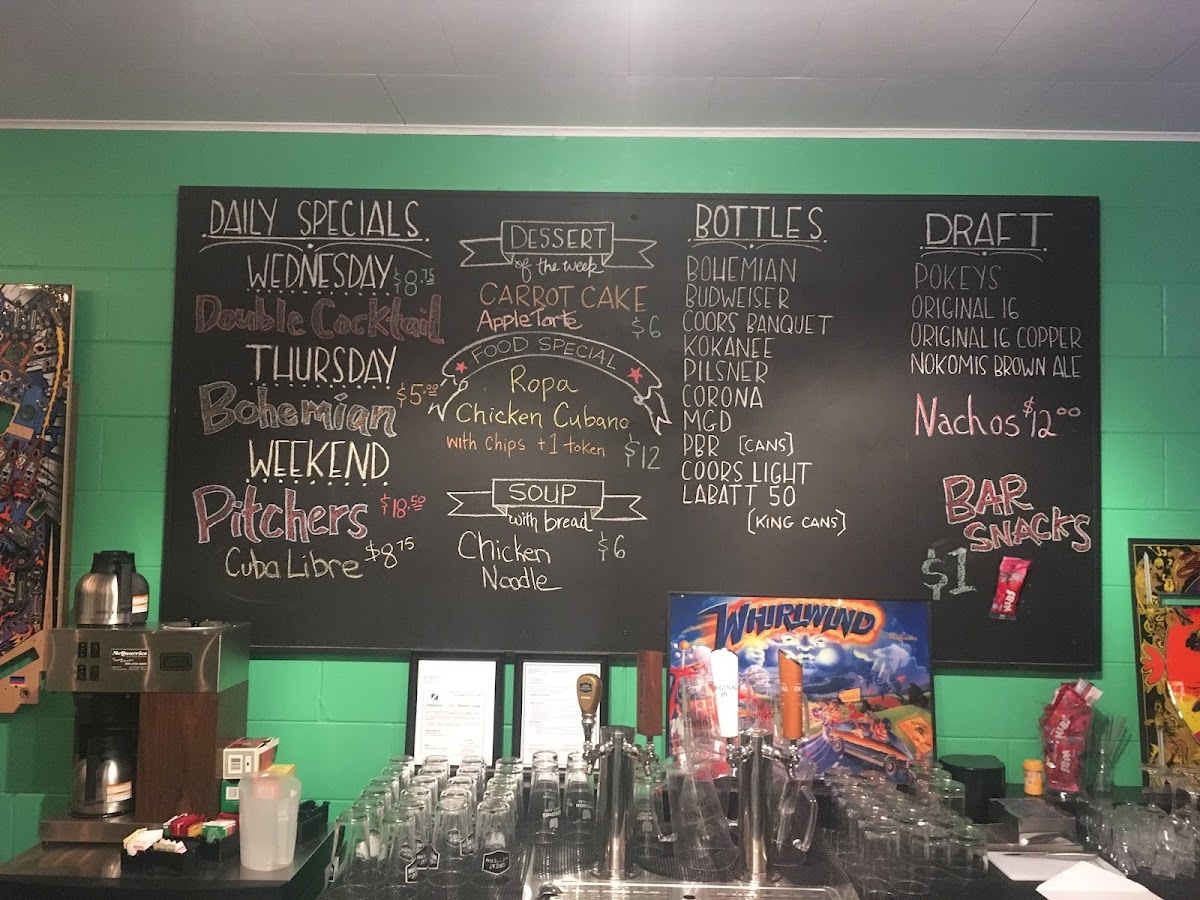 DAILY SPECIALS
WEDNESDAY $8.75
Double Cocktail
THURSDAY
Bohemian $5.00
WEEKEND
Pitchers $18.50
Cuba Libre $8.75
DESSERT
of the week
CARROT CAKE
Apple Torte $6
FOOD SPECIAL
Ropa
Chicken Cubano
with chips + 1 token $12
SOUP
with bread
Chicken $6
Noodle
BOTTLES
BOHEMIAN
BUDWEISER
COORS BANQUET
KOKANEE
PILSNER
CORONA
MGD
PBR [CANS]
COORS LIGHT
LABATT 50
[KING CANS]
DRAFT
POKEYS
ORIGINAL 16
ORIGINAL 16 COPPER
NOKOMIS BROWN ALE
Nachos $12.00
BAR
SNACKS
$1
WHIRLWIND
Williams
McQuarries
ORIGINAL
16